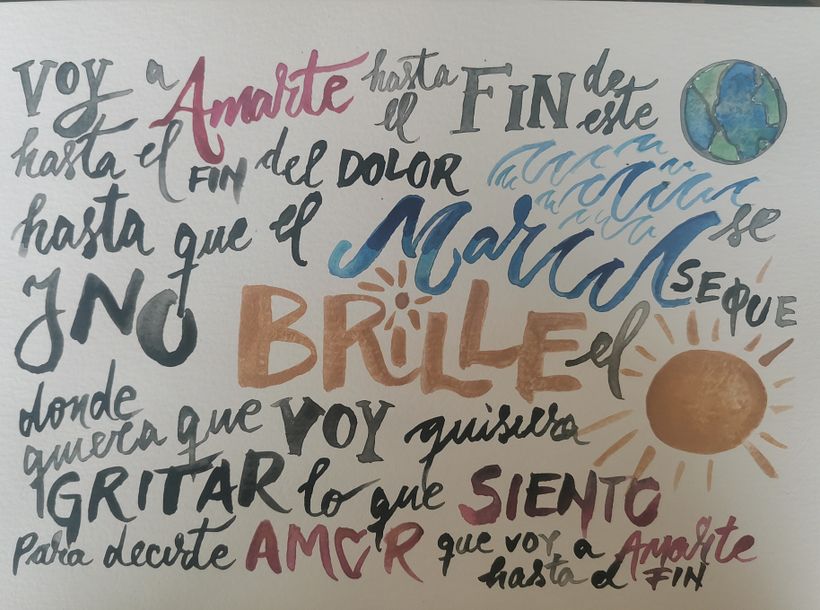 VOY a Amarte hasta el FIN de este
hasta el FIN del DOLOR
hasta que el Mar se SEQUE
Y NO BRILLE el
donde quiera que VOY quisiera
GRITAR lo que SIENTO
para decirte AMOR que voy a Amarte
hasta el FIN